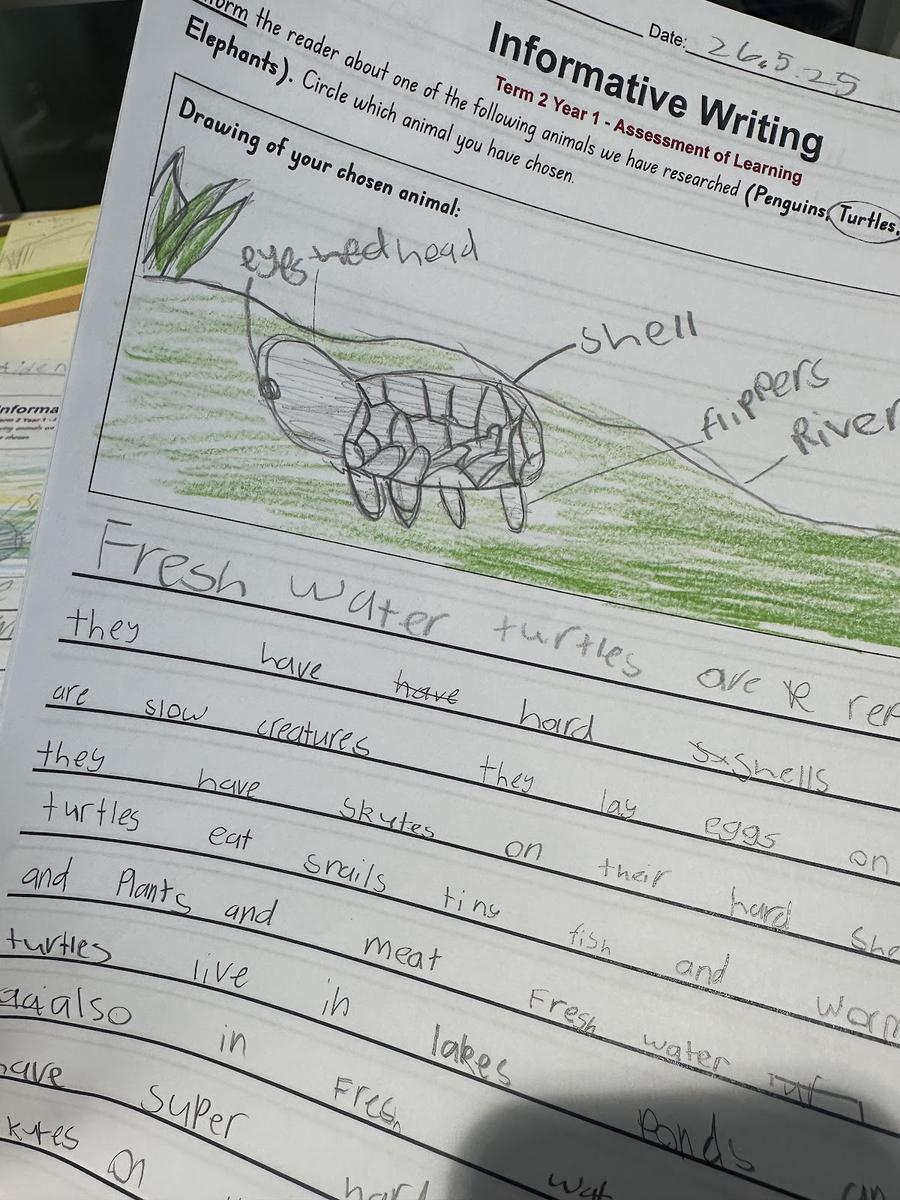 Date: 26.5.25
Informative Writing
Term 2 Year 1 - Assessment of Learning
the reader about one of the following animals we have researched (Penguins, Turtles,
Elephants). Circle which animal you have chosen.
Drawing of your chosen animal:
eyes head
shell
flippers
River
Fresh water turtles are
they have have hard shells
are slow creatures they lay eggs on
they have skutes on their hard
turtles eat snails tiny fish and
and Plants and meat Fresh water
turtles live in lakes Ponds
also in
super
on